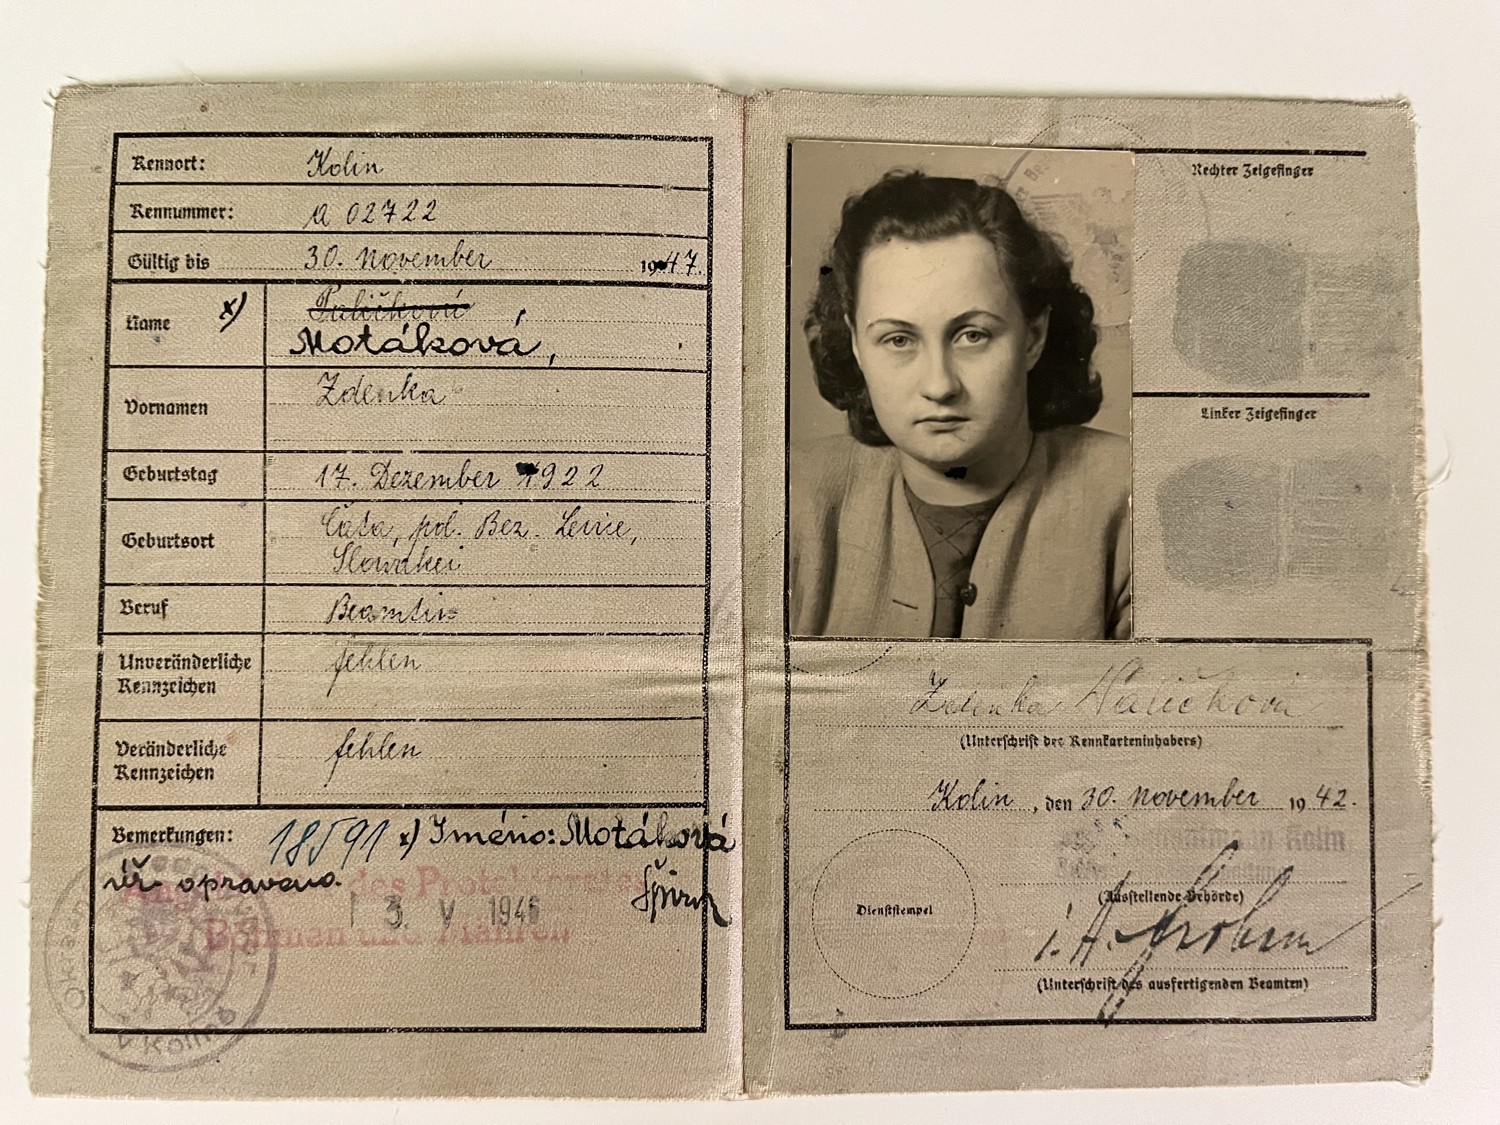 Kennort: Kolin
Kennummer: a 02722
Gültig bis 30. November 1947.
Name x)
Motáková,
Vornamen Zdenka
Geburtstag 17. Dezember 1922
Geburtsort Čata, pol. Bez. Levice,
Slowakei
Beruf Beamtin
Unveränderliche Kennzeichen fehlen
Veränderliche Kennzeichen fehlen
Bemerkungen: 18591 x) Jméno: Motáková
opraveno.
des Protektorates
Böhmen und Mähren
3 V 1946
v Kolíně
Rechter Zeigefinger
Linker Zeigefinger
Zdenka
(Unterschrift des Kennkarteninhabers)
Kolin, den 30. November 1942.
Kolin
(Ausstellende Behörde)
Dienststempel
i. A.
(Unterschrift des ausfertigenden Beamten)